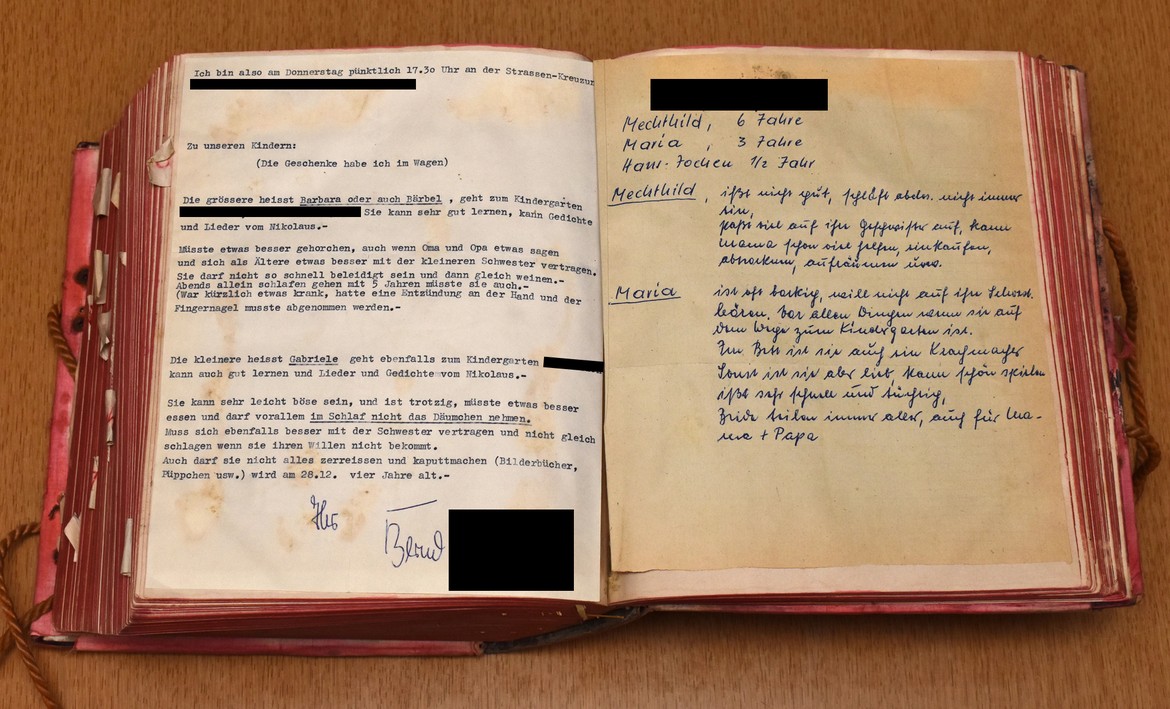 Ich bin also am Donnerstag pünktlich 17.30 Uhr an der Strassen-Kreuzun
Zu unseren Kindern:
(Die Geschenke habe ich im Wagen)
Die grössere heisst Barbara oder auch Bärbel , geht zum Kindergarten
Sie kann sehr gut lernen, kann Gedichte
und Lieder vom Nikolaus.-
Müsste etwas besser gehorchen, auch wenn Oma und Opa etwas sagen
und sich als Ältere etwas besser mit der kleineren Schwester vertragen.
Sie darf nicht so schnell beleidigt sein und dann gleich weinen.-
Abends allein schlafen gehen mit 5 Jahren müsste sie auch.-
(War kürslich etwas krank, hatte eine Entzündung an der Hand und der
Fingernagel musste abgenommen werden.-
Die kleinere heisst Gabriele geht ebenfalls zum Kindergarten
kann auch gut lernen und Lieder und Gedichte vom Nikolaus.-
Sie kann sehr leicht böse sein, und ist trotzig, müsste etwas besser
essen und darf vorallem im Schlaf nicht das Däumchen nehmen.
Muss sich ebenfalls besser mit der Schwester vertragen und nicht gleich
schlagen wenn sie ihren Willen nicht bekommt.
Auch darf sie nicht alles zerreissen und kaputtmachen (Bilderbücher,
Püppchen usw.) wird am 28.12. vier Jahre alt.-
Ihr
Bernd
Mechthild, 6 Jahre
Maria , 3 Jahre
Hans-Jochen 1/2 Jahr
Mechthild, ißt nicht gut, schläft abds. nicht immer
ein,
paßt viel auf ihre Geschwister auf, kann
Mama schon viel helfen, einkaufen,
abtrocknen, aufräumen usw.
Maria ist oft bockig, will nicht auf ihre Schwest.
hören. Vor allen Dingen wenn sie auf
dem Wege zum Kindergarten ist.
Im Bett ist sie auch ein Krachmacher
Sonst ist sie aber lieb, kann schön spielen
ißt sehr schnell und tüchtig,
Beide teilen immer alles, auch für Ma-
ma + Papa